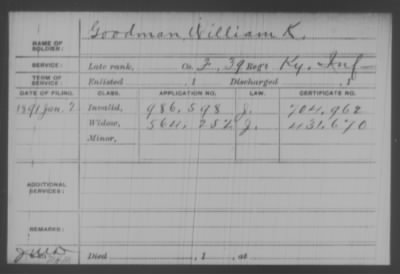 Goodman William K.
NAME OF SOLDIER:
SERVICE: Late rank, Co. F, 39 Reg't Ky. Inf
TERM OF SERVICE: Enlisted , 1 Discharged , 1
DATE OF FILING. CLASS. APPLICATION NO. LAW. CERTIFICATE NO.
1891 Jan. 7. Invalid, 986,598 J. 704,962
Widow, 564,252 J. 431,670
Minor,
ADDITIONAL SERVICES:
REMARKS:
Died , 1 , at